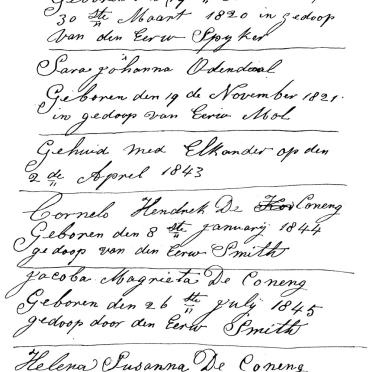 30 ste Maart 1820 in gedoop
van den Eerw Spyker
Sara Johanna Odendaal
Geboren den 19 de November 1821.
in gedoop van Eerw Mol
Gehuid med Elkander op den
2 de Aprel 1843
Cornelo Hendrek De Coneng
Geboren den 8 ste January 1844
gedoop van den Eerw Smith
Jacoba Magrieta De Coneng
Geboren den 26 ste July 1845
gedoop door den Eerw Smith
Helena Susanna De Coneng